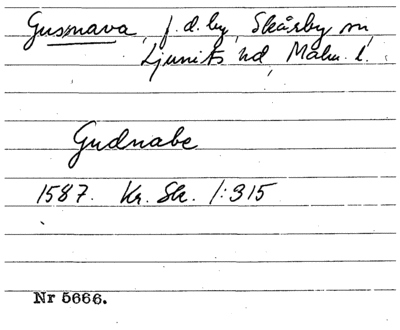 Gusnava, f. d. by, Skårby sn,
Ljunits hd, Malm. l.
Gudnabe
1587. Kr. Sk. 1:315
Nr 5666.